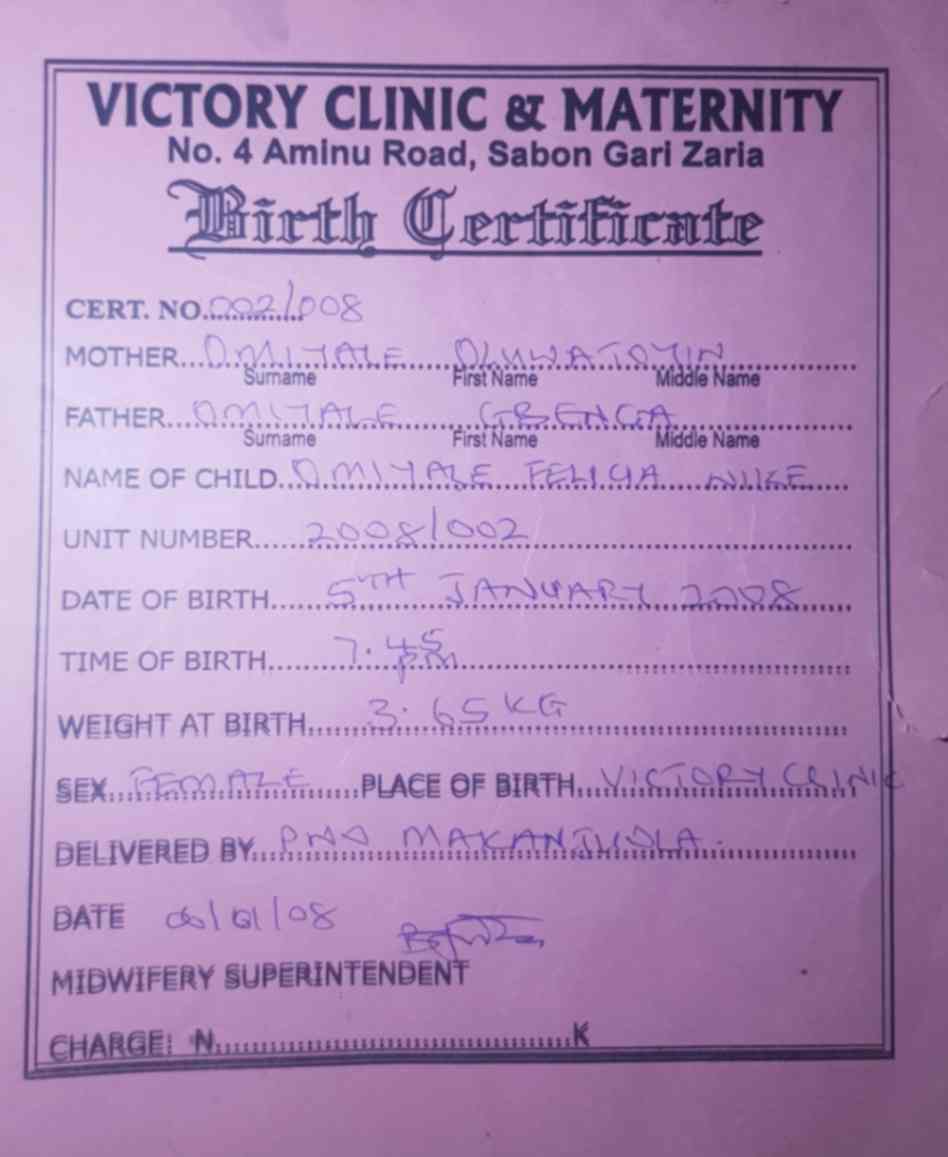 VICTORY CLINIC & MATERNITY
No. 4 Aminu Road, Sabon Gari Zaria
Birth Certificate
CERT. NO. 002/008
MOTHER... OMIYALE OLUWATOYIN
Surname First Name Middle Name
FATHER... OMIYALE GBENGA
Surname First Name Middle Name
NAME OF CHILD.. OMIYALE FELICIA NIKE
UNIT NUMBER..... 2008/002
DATE OF BIRTH...... 5TH JANUARY 2008
TIME OF BIRTH....... 7.45 P.M
WEIGHT AT BIRTH..... 3.65KG
SEX... FEMALE ...PLACE OF BIRTH... VICTORY CRINIC
DELIVERED BY... PNO MAKANJUOLA.
DATE 06/01/08
MIDWIFERY SUPERINTENDENT
CHARGE: N....................K